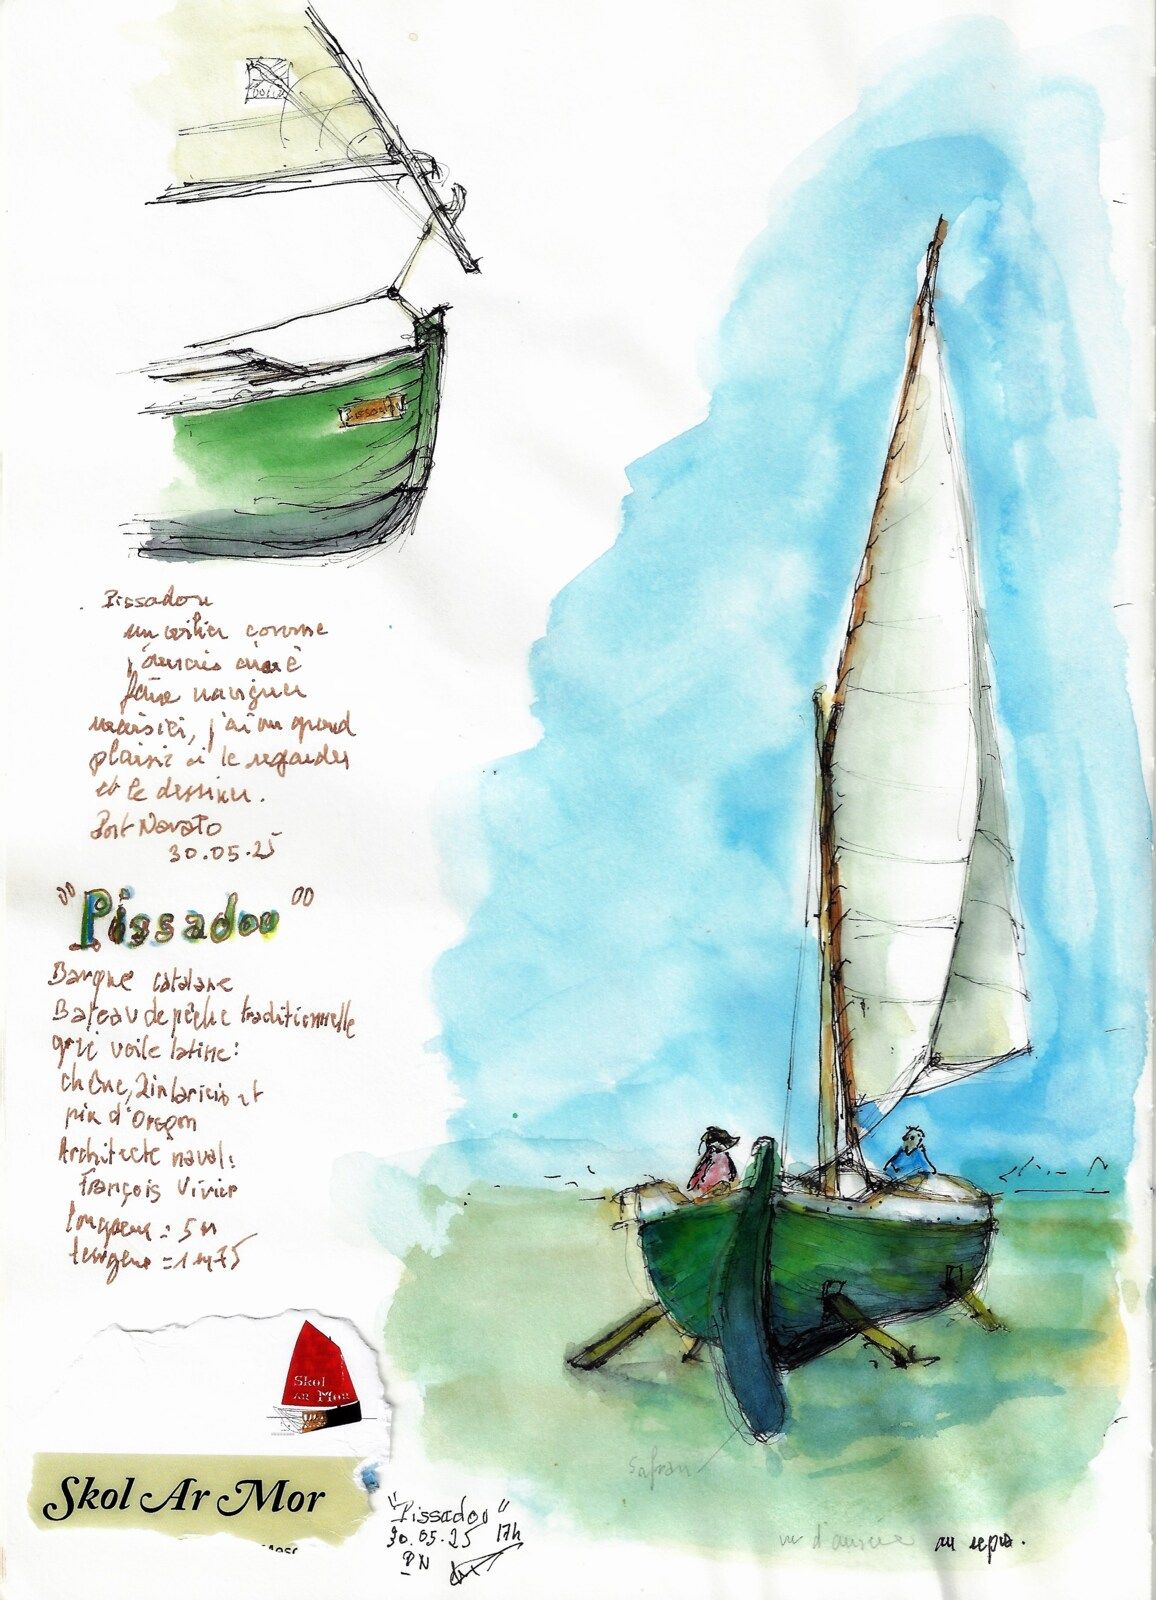 Pissadou
Pissadou
un voilier comme
j'aurais aimé
faire naviguer
mais ici, j'ai un grand
plaisir à le regarder
et le dessiner.
Port Navalo
30.05.25
"Pissadou"
Barque catalane
Bateau de pêche traditionnelle
gréé voile latine:
chêne, et
pin d'Oregon
Architecte naval:
François Vivier
longueur = 5 m
= 1 m 75
Skol
Ar Mor
Skol Ar Mor
"Pissadou"
30.05.25 17h
PN
Safran
au repos.